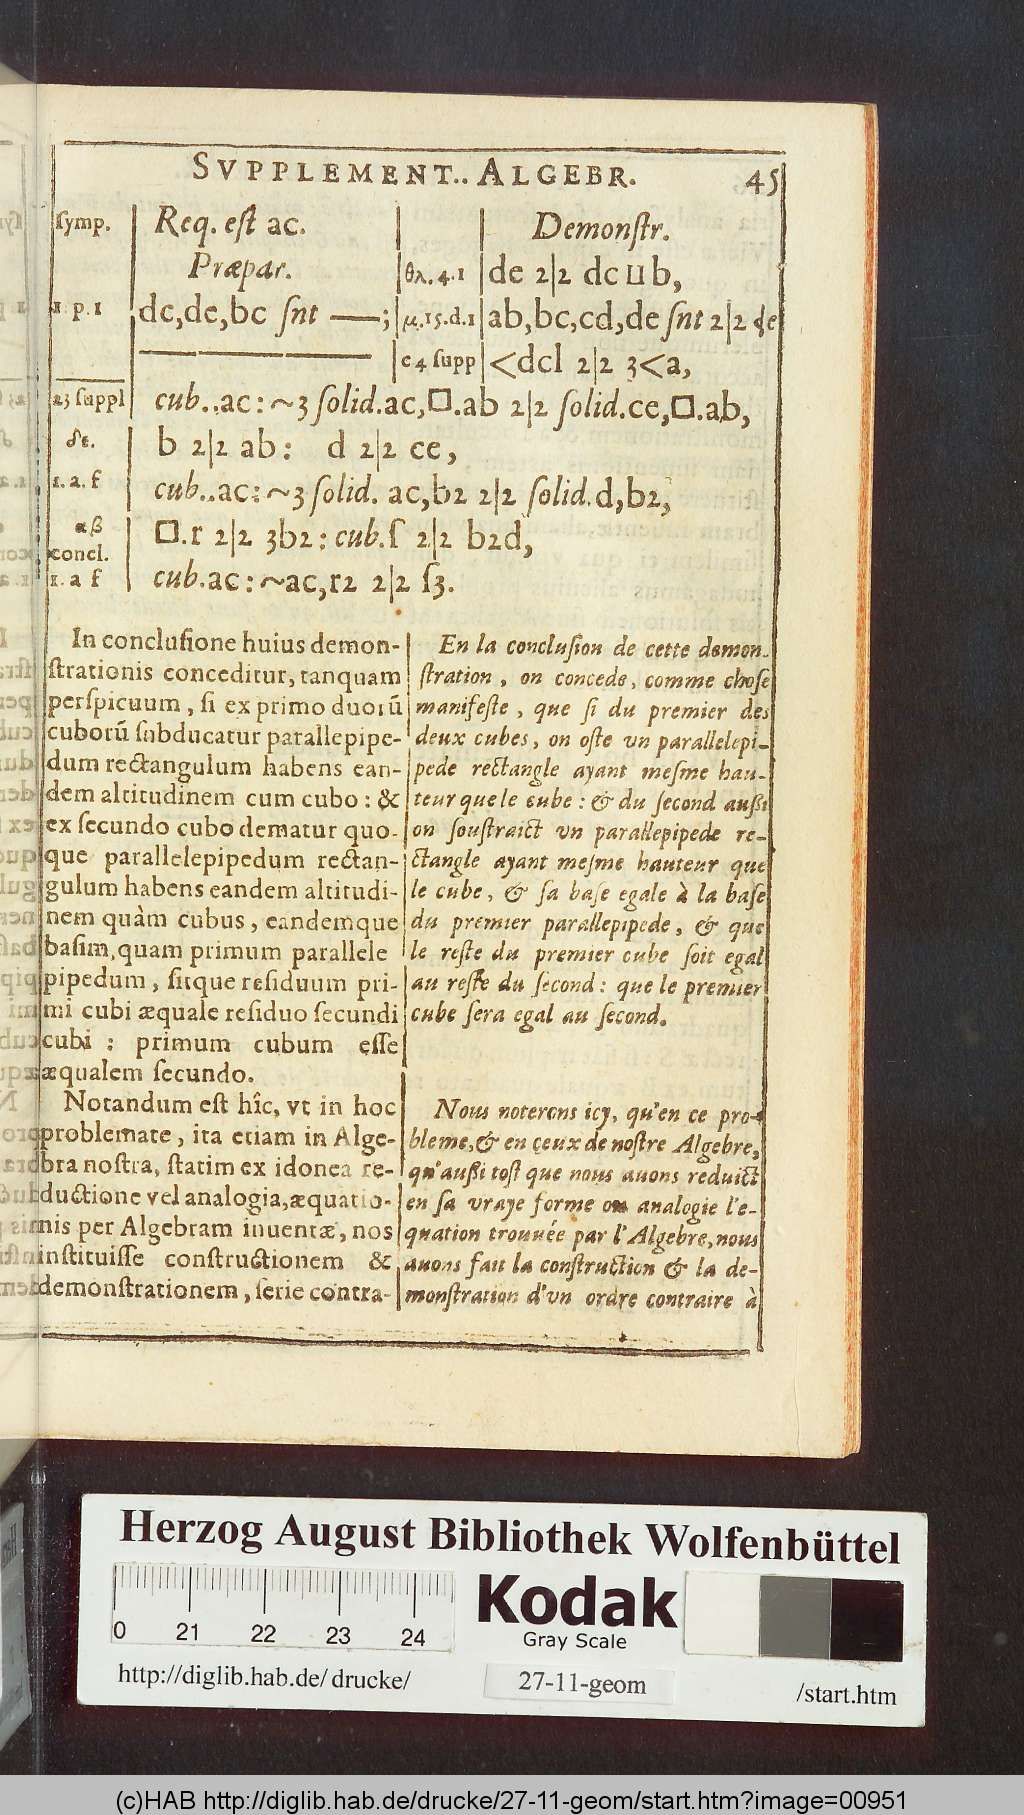 SVPPLEMENT.. ALGEBR. 45
ſymp. Req. eſt ac. Demonſtr.
Præpar. θλ. 4. 1 de 2|2 dc ⊔ b,
1. p. 1 dc, de, bc ſnt —; μ. 15. d. 1 ab, bc, cd, de ſnt 2|2 de
c 4 ſupp <dcl 2|2 3<a,
23 ſuppl cub..ac: ~3 ſolid.ac,□.ab 2|2 ſolid.ce,□.ab,
δε. b 2|2 ab: d 2|2 ce,
1. a. f cub..ac: ~3 ſolid. ac,b2 2|2 ſolid.d,b2,
αβ □.r 2|2 3b2: cub.ſ 2|2 b2d,
concl.
1. a f cub.ac: ~ac,r2 2|2 ſ3.
In concluſione huius demon-
ſtrationis conceditur, tanquam
perſpicuum, ſi ex primo duorū
cuborū ſubducatur parallepipe-
dum rectangulum habens ean-
dem altitudinem cum cubo: &
ex ſecundo cubo dematur quo-
que parallelepipedum rectan-
gulum habens eandem altitudi-
nem quàm cubus, eandemque
baſim, quam primum parallele
pipedum, ſitque reſiduum pri-
mi cubi æquale reſiduo ſecundi
cubi : primum cubum eſſe
æqualem ſecundo.
Notandum eſt hîc, vt in hoc
problemate, ita etiam in Alge-
bra noſtra, ſtatim ex idonea re-
ductione vel analogia, æquatio-
nis per Algebram inuentæ, nos
inſtituiſſe conſtructionem &
demonſtrationem, ſerie contra-
En la concluſion de cette demon-
ſtration, on concede, comme choſe
manifeſte, que ſi du premier des
deux cubes, on oſte vn parallelepi-
pede rectangle ayant meſme hau-
teur que le cube: & du ſecond auſſi
on ſouſtraict vn parallepipede re-
ctangle ayant meſme hauteur que
le cube, & ſa baſe egale à la baſe
du premier parallepipede, & que
le reſte du premier cube ſoit egal
au reſte du ſecond: que le premier
cube ſera egal au ſecond.
Nous noterons icy, qu'en ce pro-
bleme, & en ceux de noſtre Algebre,
qu'auſſi toſt que nous auons reduict
en ſa vraye forme ou analogie l'e-
quation trouuée par l'Algebre, nous
auons fait la conſtruction & la de-
monſtration d'vn ordre contraire à
Herzog August Bibliothek Wolfenbüttel
0 21 22 23 24
Kodak
Gray Scale
http://diglib.hab.de/drucke/ 27-11-geom /start.htm
(c)HAB http://diglib.hab.de/drucke/27-11-geom/start.htm?image=00951